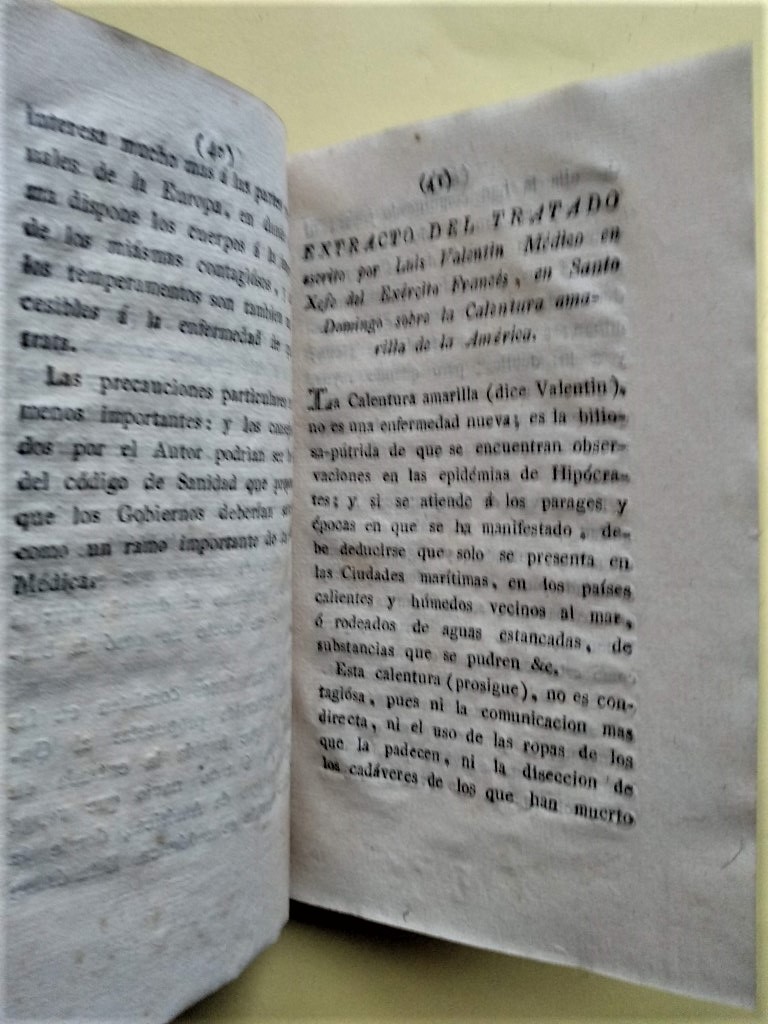 (40)
interesa mucho mas á las partes
nales de la Europa, en donde
ma dispone los cuerpos á la
de los miásmas contagiósos,
los temperamentos son tambien
cesibles á la enfermedad de
trata.
Las precauciones particulares
menos importantes: y los
dos por el Autor podrian ser
del código de Sanidad que
que los Gobiernos deberían
como un ramo importante de
Médica.
(41)
EXTRACTO DEL TRATADO
escrito por Luis Valentin Médico en
Xefe del Exército Francés, en Santo
Domingo sobre la Calentura ama-
rilla de la América.
La Calentura amarilla (dice Valentin),
no es una enfermedad nueva; es la bilio-
sa-pútrida de que se encuentran obser-
vaciones en las epidémias de Hipócra-
tes; y si se atiende á los parages y
épocas en que se ha manifestado, de-
be deducirse que solo se presenta en
las Ciudades marítimas, en los países
calientes y húmedos vecinos al mar,
ó rodeados de aguas estancadas, de
substancias que se pudren &c.
Esta calentura (prosigue), no es con-
tagiósa, pues ni la comunicacion mas
directa, ni el uso de las ropas de los
que la padecen, ni la diseccion de
los cadáveres de los que han muerto